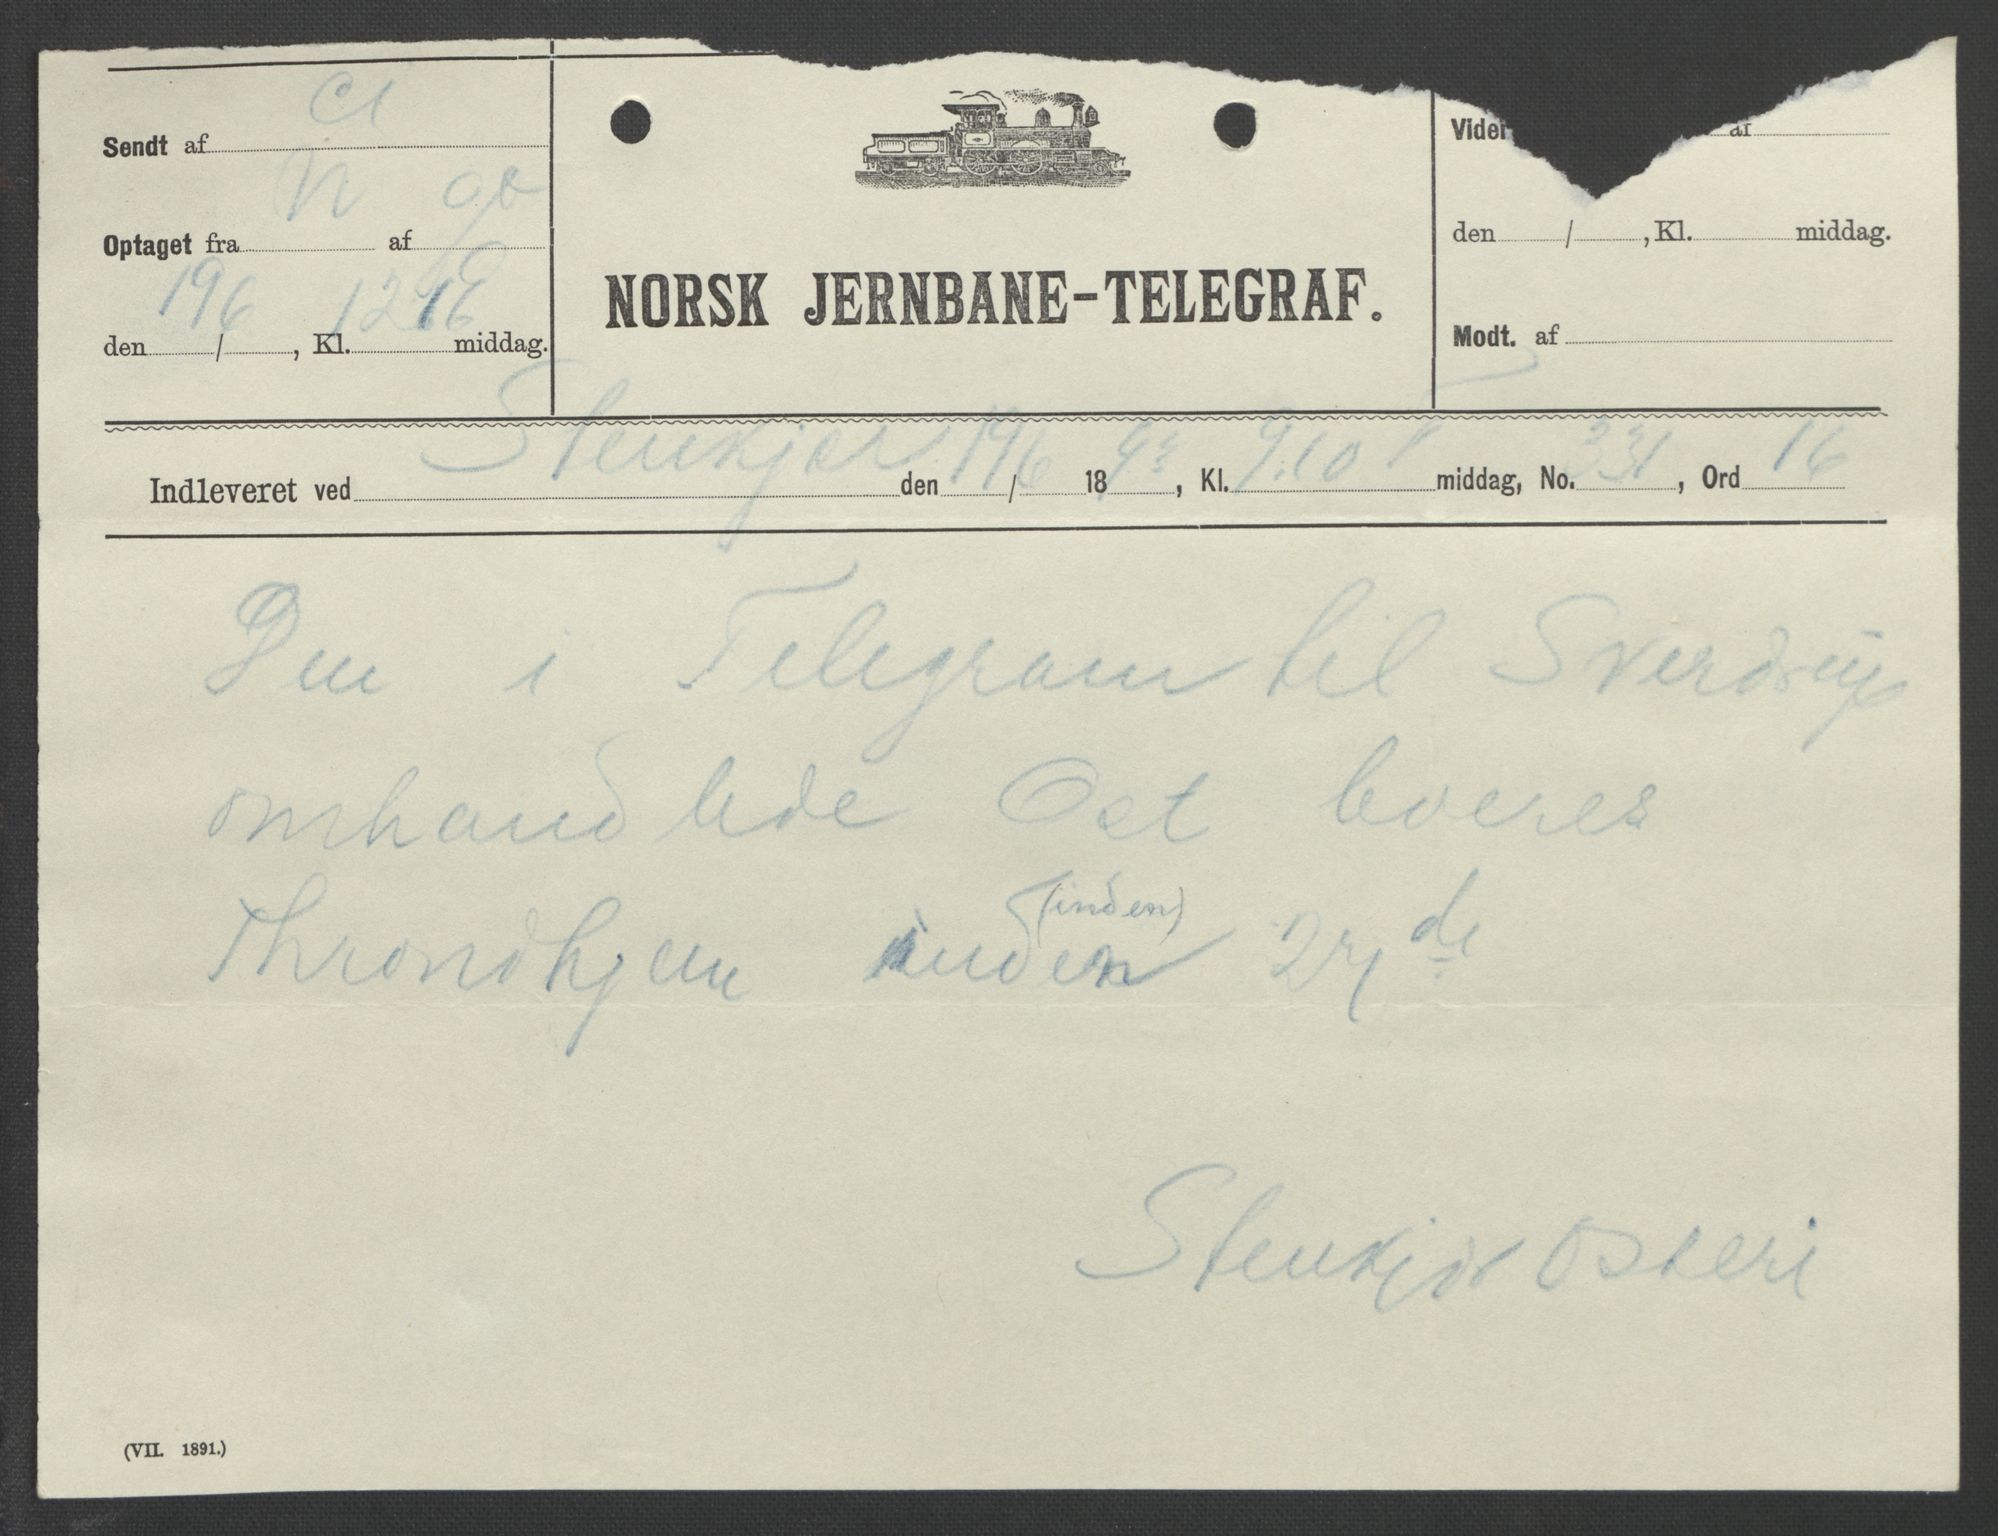 Sendt af
N go
Optaget fra af
19 6 12
den / , Kl. middag.
NORSK JERNBANE-TELEGRAF.
Vider af
den / , Kl. middag.
Modt. af
Indleveret ved Stenkjær den 19/6 18 , Kl. 9.10 middag, No. 331 , Ord 16
Den i Telegram til Sverdrup
omhandlede Ost leveres
(inden)
Throndhjem inden 24de
Stenkjær Osteri
(VII. 1891.)